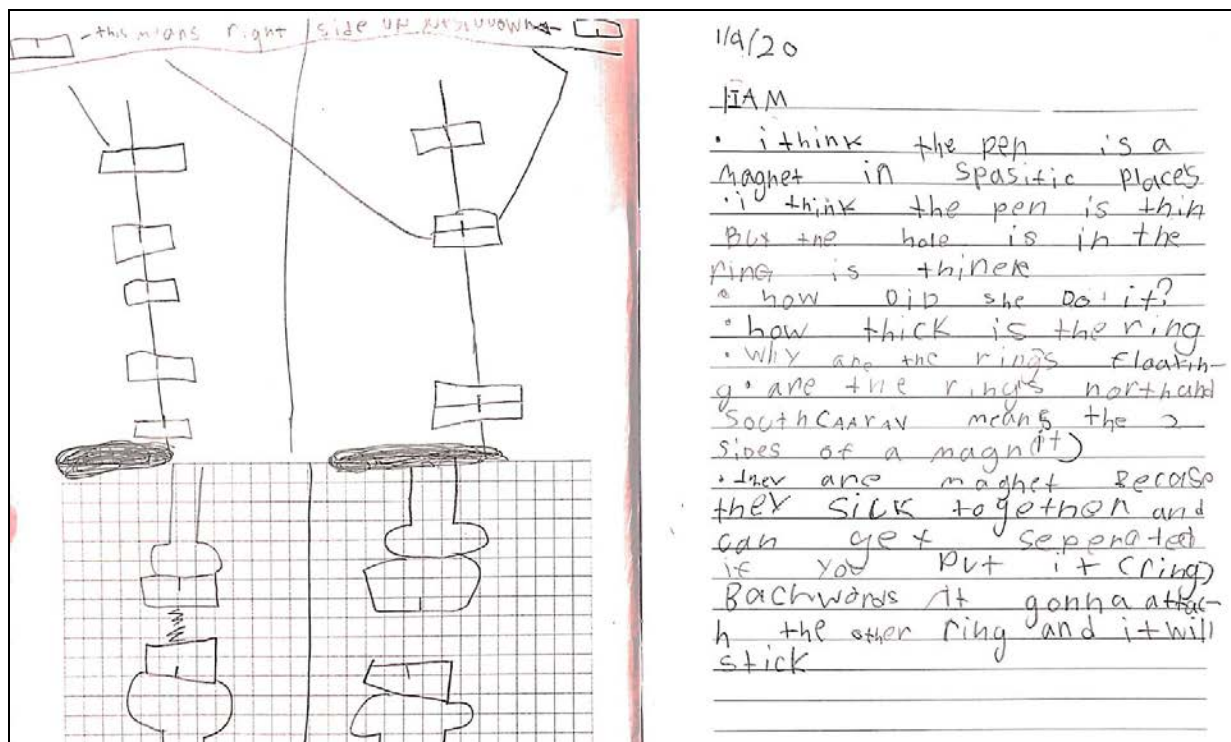 -this means right side up
1/9/20
IAM
• i think the pen is a
magnet in spasific places
• i think the pen is thin
But the hole is in the
ring is thinek
• how DiD she Do it?
• how thick is the ring
• Why are the rings floatin-
g • are the ring's north and
south means the 2
sides of a magn(it)
• they are magnet Becorse
they sick together and
can get seperated
if you put it (ring)
Backwords it gonna attac-
h the other ring and it will
stick